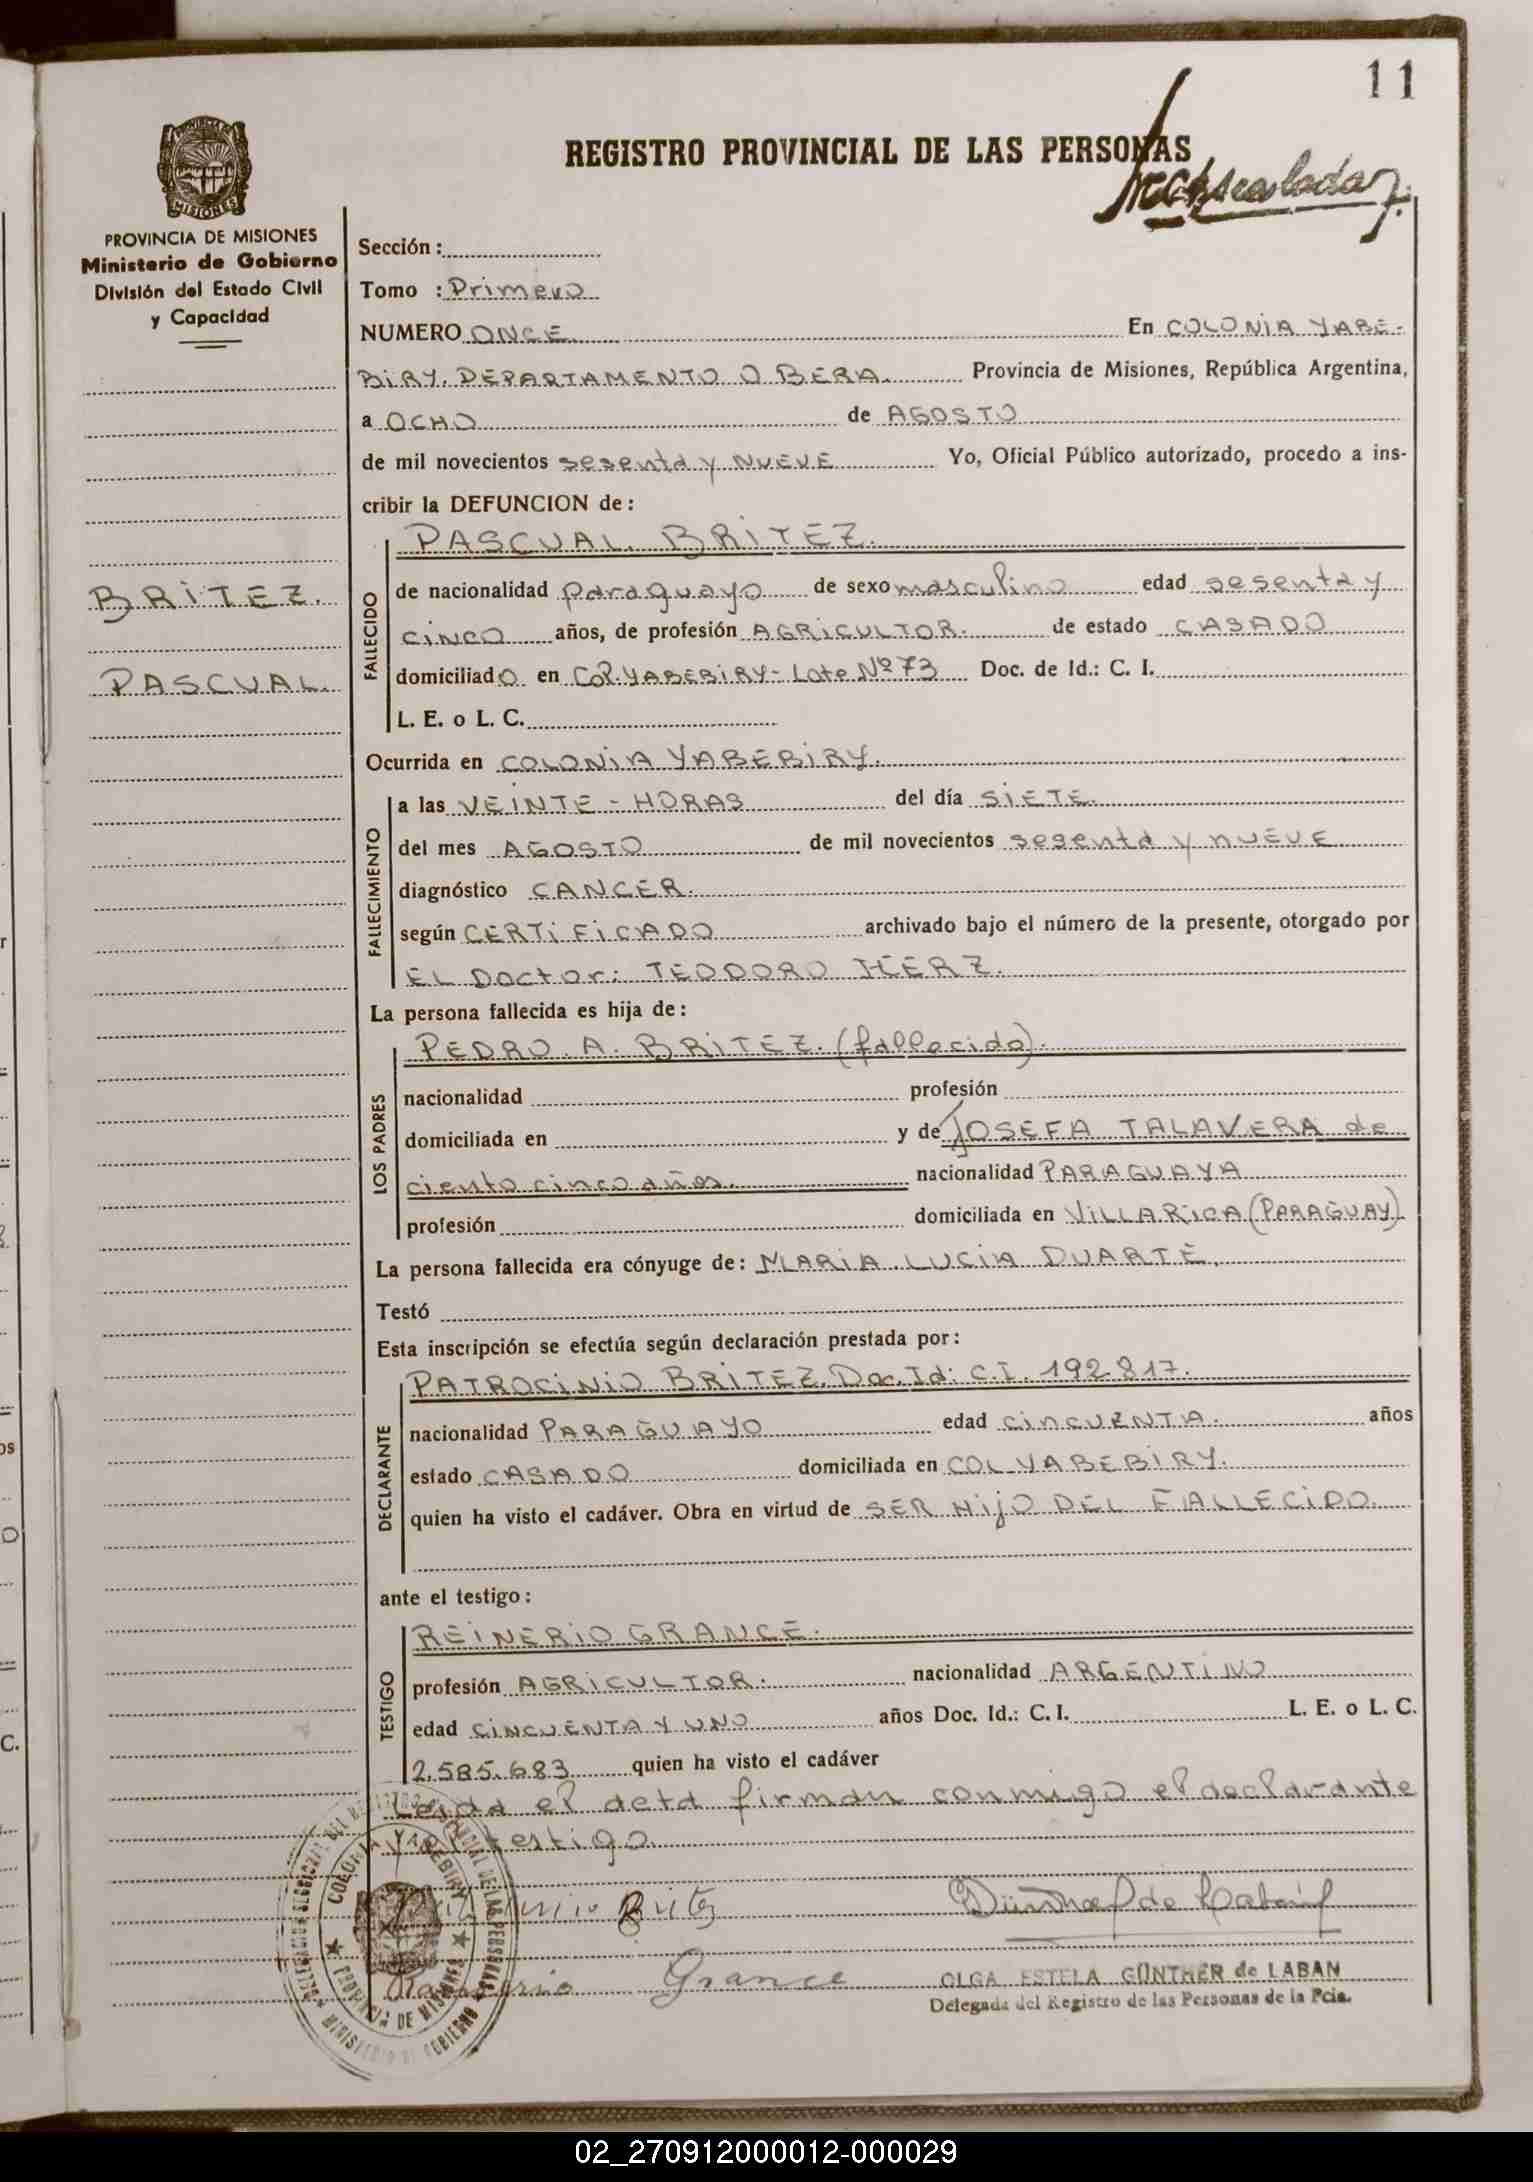 11
REGISTRO PROVINCIAL DE LAS PERSONAS
PROVINCIA DE MISIONES
Ministerio de Gobierno
División del Estado Civil
y Capacidad
BRITEZ.
PASCUAL.
Sección:
Tomo : Primero
NUMERO ONCE En COLONIA YABE-
BIRY. DEPARTAMENTO O BERA. Provincia de Misiones, República Argentina,
a OCHO de AGOSTO
de mil novecientos sesenta y NUEVE Yo, Oficial Público autorizado, procedo a ins-
cribir la DEFUNCION de:
PASCUAL BRITEZ.
FALLECIDO
de nacionalidad paraguayo de sexo masculino edad sesenta y
CINCO años, de profesión AGRICULTOR. de estado CASADO
domiciliado en Col. YABEBIRY - Lote Nº 73 Doc. de Id.: C. I.
L. E. o L. C.
Ocurrida en COLONIA YABEBIRY.
FALLECIMIENTO
a las VEINTE - HORAS del día SIETE.
del mes AGOSTO de mil novecientos sesenta y nueve
diagnóstico CANCER.
según CERTIFICADO archivado bajo el número de la presente, otorgado por
EL Doctor: TEODORO HERZ.
La persona fallecida es hija de:
LOS PADRES
PEDRO A. BRITEZ. (fallecido).
nacionalidad profesión
domiciliada en y de JOSEFA TALAVERA de
ciento cinco años. nacionalidad PARAGUAYA
profesión domiciliada en VILLARICA (PARAGUAY)
La persona fallecida era cónyuge de: MARIA LUCIA DUARTE.
Testó
Esta inscripción se efectúa según declaración prestada por:
DECLARANTE
PATROCINIO BRITEZ. Doc. Id: C.I. 192.817.
nacionalidad PARAGUAYO edad CINCUENTA. años
estado CASADO domiciliada en COL YABEBIRY.
quien ha visto el cadáver. Obra en virtud de SER HIJO DEL FALLECIDO.
ante el testigo:
TESTIGO
REINERIO GRANCE.
profesión AGRICULTOR. nacionalidad ARGENTINO
edad CINCUENTA Y UNO años Doc. Id.: C. I. L. E. o L. C.
2.585.683 quien ha visto el cadáver
Leida el acta firman conmigo el declarante
y el testigo
Britez
Grance
OLGA ESTELA GÜNTHER de LABAN
Delegada del Registro de las Personas de la Pcia.
COLONIA YABEBIRY
PROVINCIA DE MISIONES
02_270912000012-000029